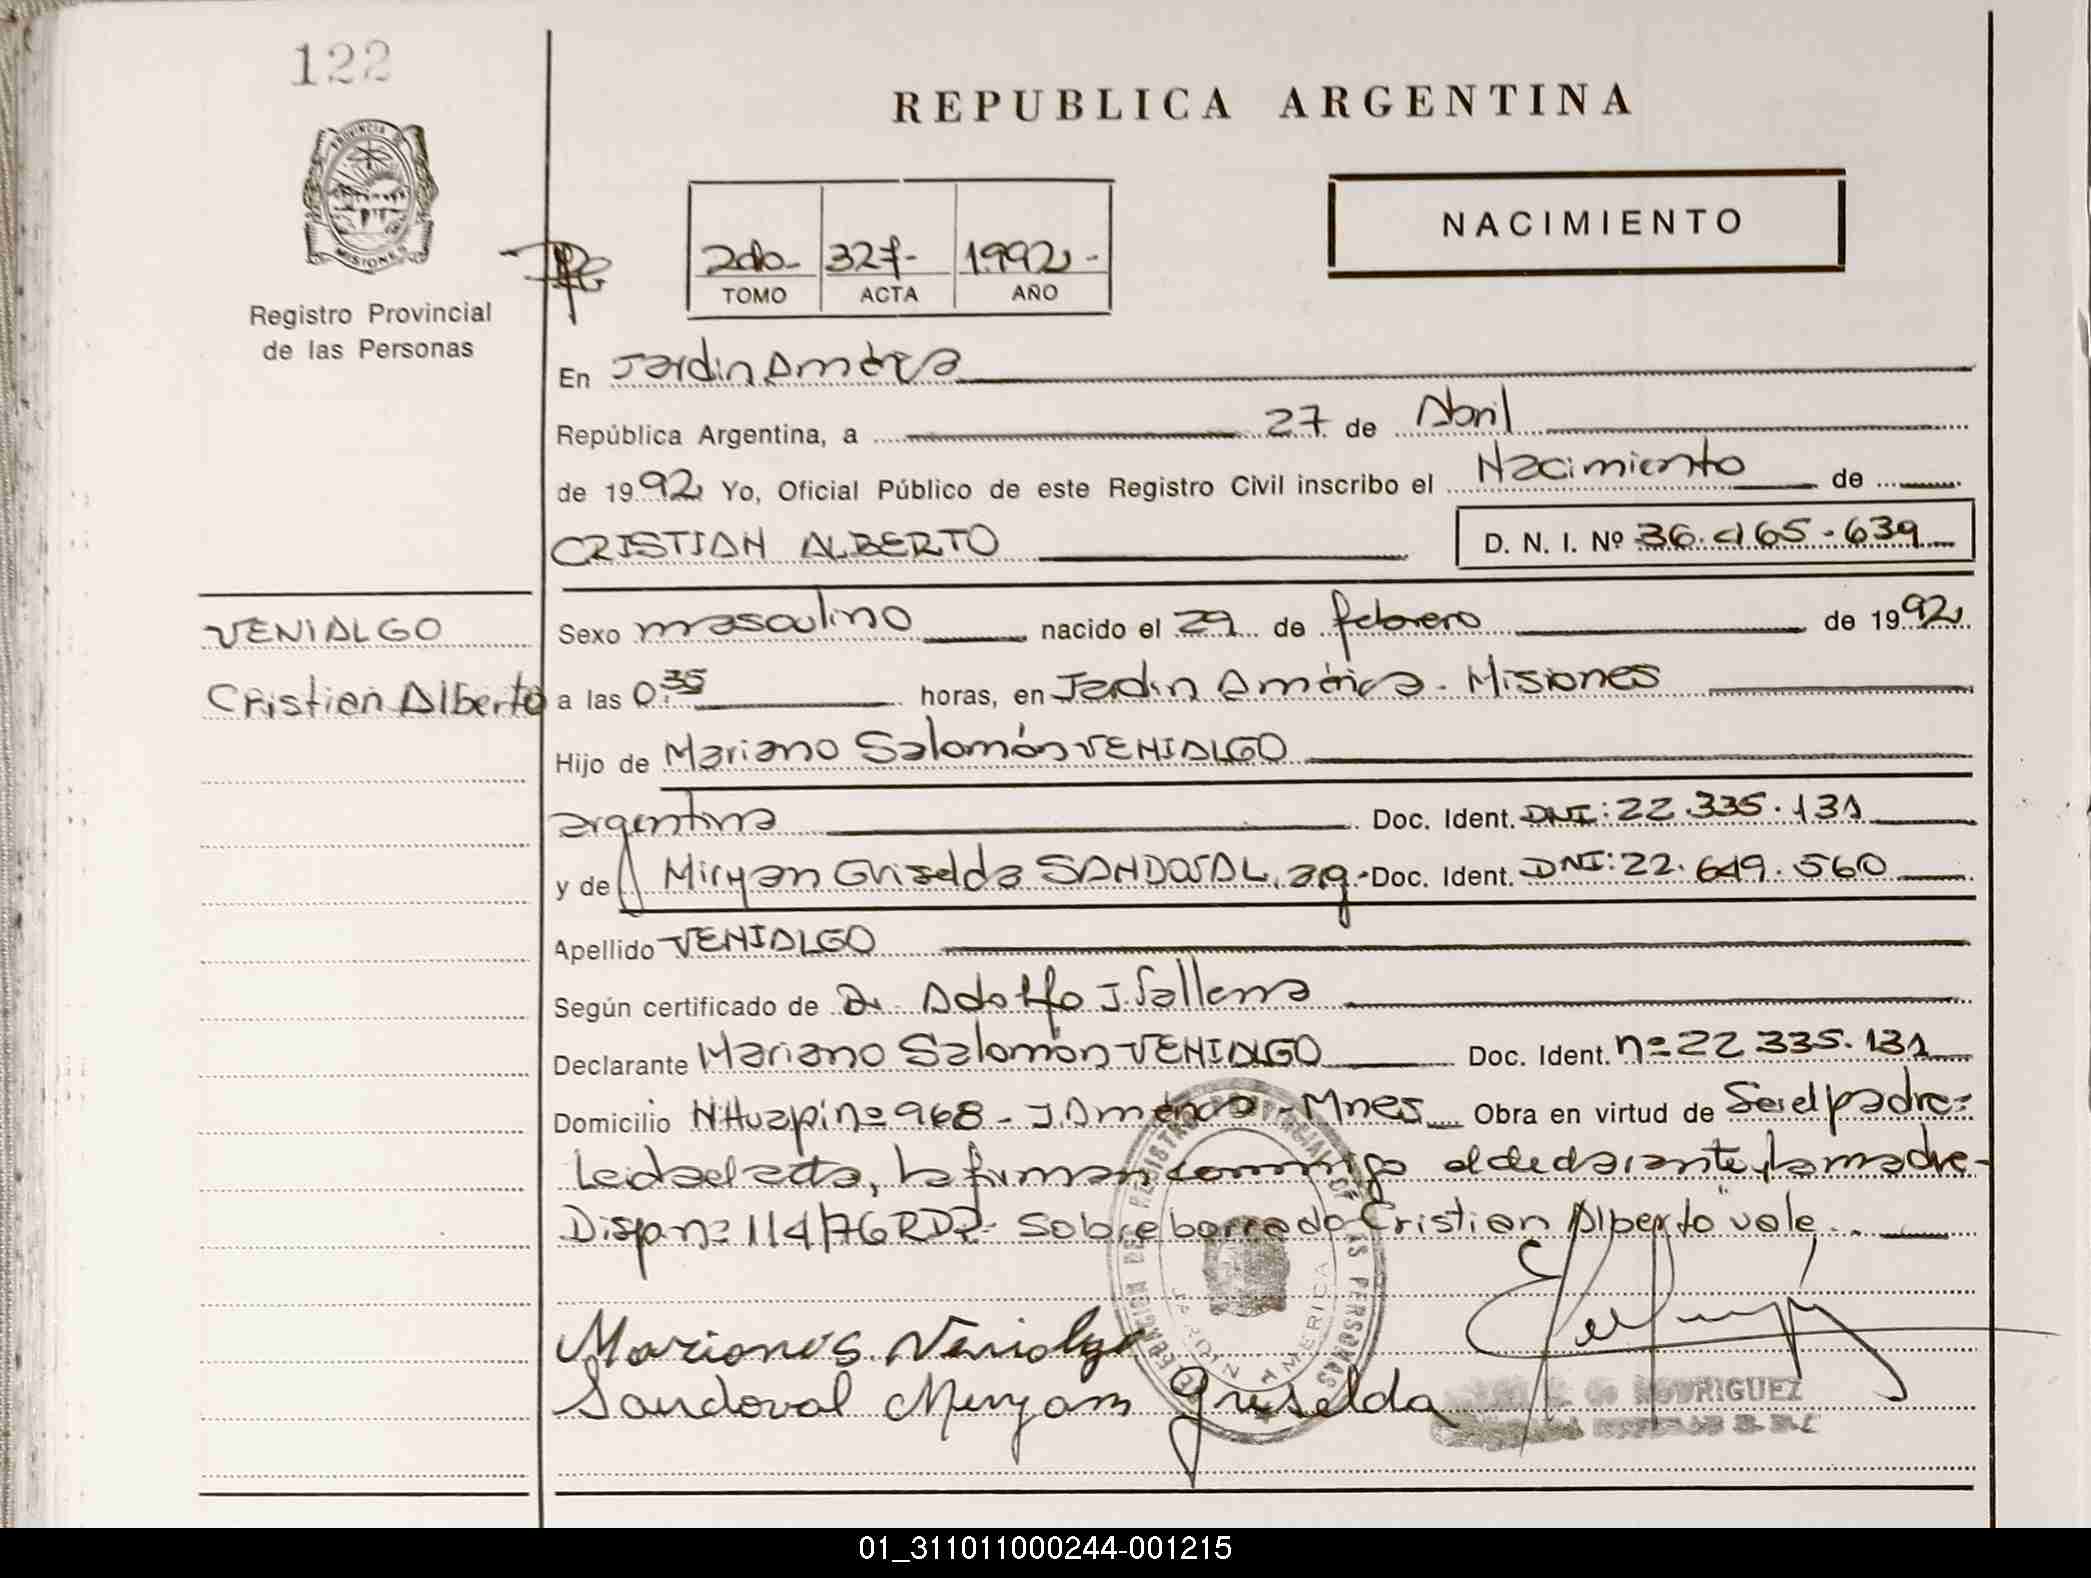 122
REPUBLICA ARGENTINA
PROVINCIA D
MISIONES
Registro Provincial
de las Personas
2do- 327- 1992-
TOMO ACTA AÑO
NACIMIENTO
En Jardin América
República Argentina, a 27 de Abril
de 1992 Yo, Oficial Público de este Registro Civil inscribo el Nacimiento de
CRISTIAN ALBERTO D. N. I. Nº 36.465.639
VENIALGO
Cristian Alberto
Sexo masculino nacido el 29 de febrero de 1992
a las 0.35 horas, en Jardin América - Misiones
Hijo de Mariano Salomón VENIALGO
argentina Doc. Ident. DNI: 22.335.131
y de Miryan Griselda SANDOVAL, arg. Doc. Ident. DNI: 22.649.560
Apellido VENIALGO
Según certificado de Dr. Adolfo J.
Declarante Mariano Salomón VENIALGO Doc. Ident. nº 22 335.131
Domicilio N.Huapi nº 968 - J. América - Mnes Obra en virtud de Ser el padre-
Leida el acta, la firman conmigo el declarante, la madre-
Disp nº 114/76 RDP- Sobre borrado Cristian Alberto" vale.
Mariano S. Venialgo
Sandoval Miryam Griselda
JARDIN AMERICA
de RODRIGUEZ
01_311011000244-001215